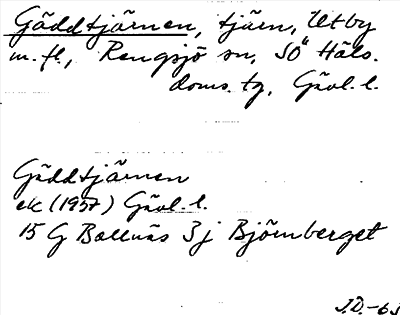 Gäddtjärnen, tjärn, Utby
m. fl., Rengsjö sn, SÖ Häls.
doms. tg, Gävl. l.
Gäddtjärnen
ek (1957) Gävl. l.
15 G Bollnäs 3j Björnberget
J.D.-63